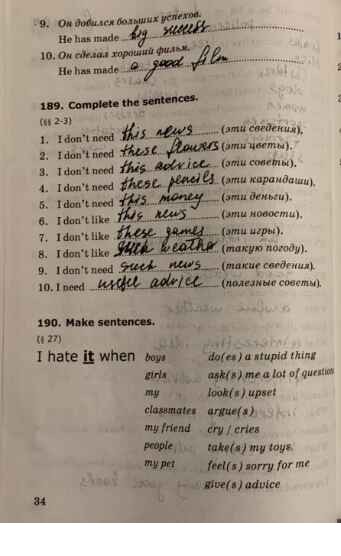 9. Он добился больших успехов.
He has made big success
10. Он сделал хороший фильм.
He has made a good film
189. Complete the sentences.
(§§ 2-3)
1. I don't need this news (эти сведения).
2. I don't need these flowers (эти цветы).
3. I don't need this advice (эти советы).
4. I don't need these pencils (эти карандаши).
5. I don't need this money (эти деньги).
6. I don't like this news (эти новости).
7. I don't like these games (эти игры).
8. I don't like such weather (такую погоду).
9. I don't need such news (такие сведения).
10. I need useful advice (полезные советы).
190. Make sentences.
(§ 27)
I hate it when boys do(es) a stupid thing
girls ask(s) me a lot of question
my look(s) upset
classmates argue(s)
my friend cry / cries
people take(s) my toys.
my pet feel(s) sorry for me
give(s) advice
34